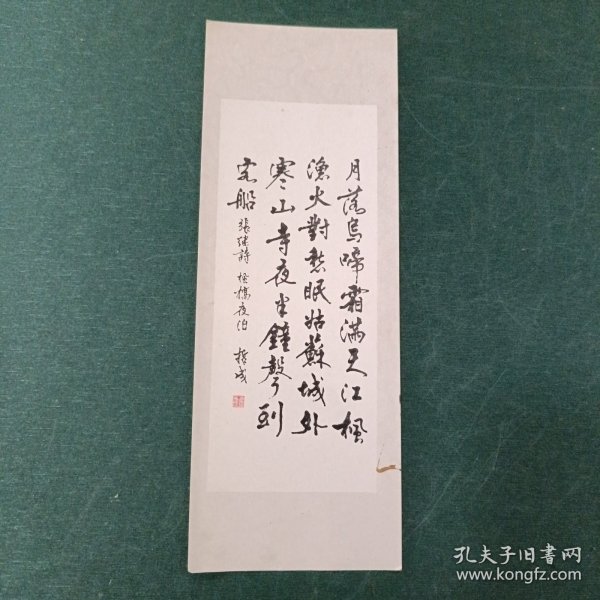 月落烏啼霜滿天江楓
漁火對愁眠姑蘇城外
寒山寺夜半鐘聲到
客船 張繼詩 楓橋夜泊
孔夫子旧書网
www.kongfz.com